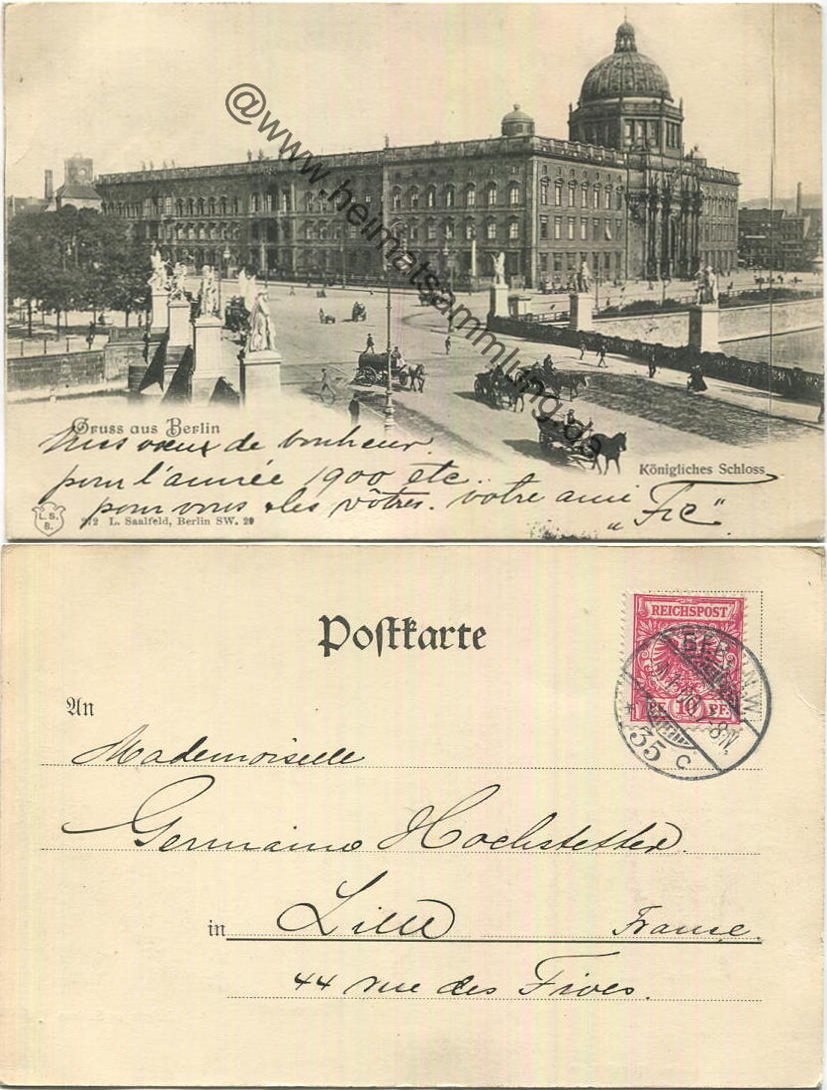 @www.heimatsammlung.de
Gruss aus Berlin
Mes vœux de bonheur
Königliches Schloss
pour l'année 1900 etc..
pour vous & les vôtres. votre ami
"Fic".
L.S.B.
272 L. Saalfeld, Berlin SW. 29
Postkarte
REICHSPOST
PF. 10 PF.
BERLIN, W.
35 c
An
Mademoiselle
Germaine Hochstetter.
in Lille France.
44 rue des Fives.